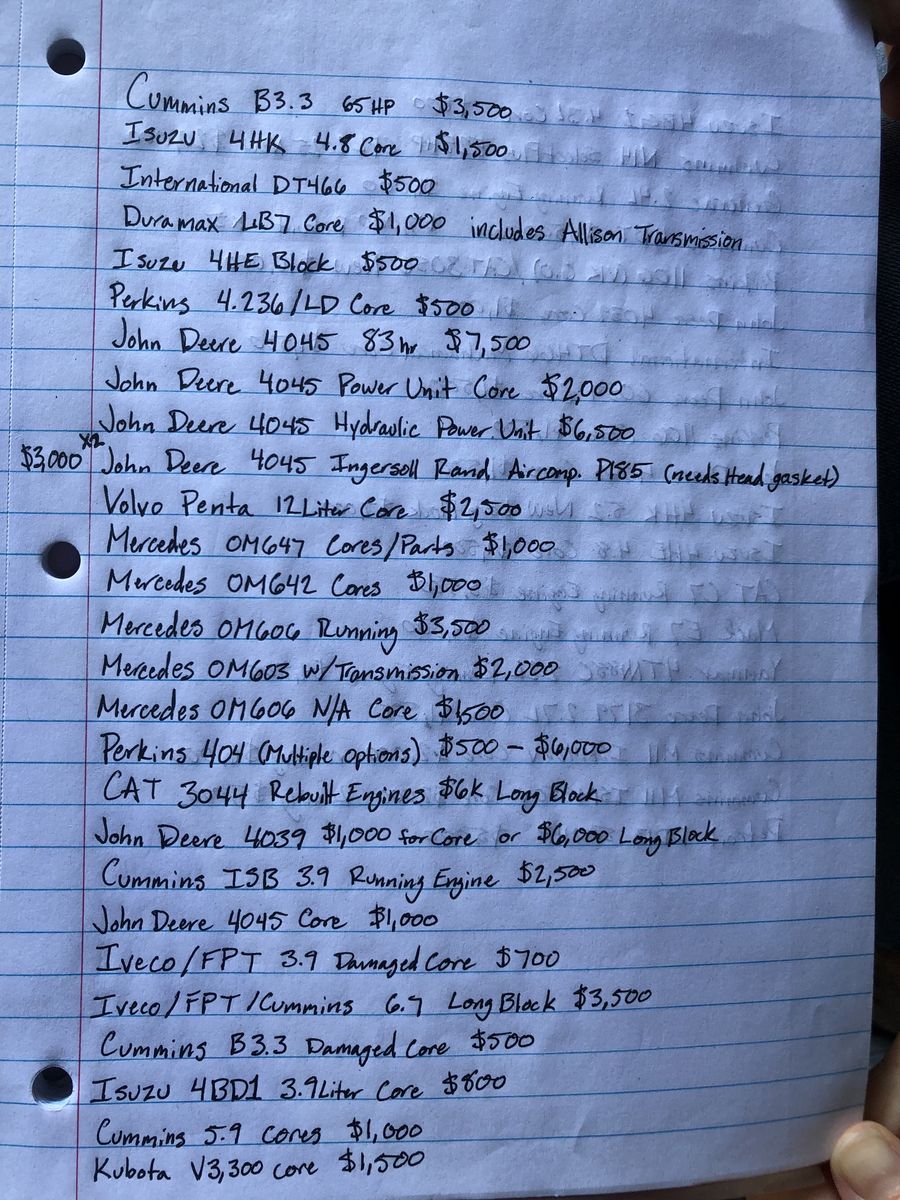 Cummins B3.3 65HP $3,500
Isuzu 4HK 4.8 Core $1,500
International DT466 $500
Duramax LB7 Core $1,000 includes Allison Transmission
Isuzu 4HE Block $500
Perkins 4.236/LD Core $500
John Deere 4045 83hr $7,500
John Deere 4045 Power Unit Core $2,000
John Deere 4045 Hydraulic Power Unit $6,500
$3,000 x2 John Deere 4045 Ingersoll Rand Aircomp. P185 (needs Head gasket)
Volvo Penta 12Liter Core $2,500
Mercedes OM647 Cores/Parts $1,000
Mercedes OM642 Cores $1,000
Mercedes OM606 Running $3,500
Mercedes OM603 w/Transmission $2,000
Mercedes OM606 N/A Core $1,500
Perkins 404 (Multiple options) $500 - $6,000
CAT 3044 Rebuilt Engines $6k Long Block
John Deere 4039 $1,000 for Core or $6,000 Long Block
Cummins ISB 3.9 Running Engine $2,500
John Deere 4045 Core $1,000
Iveco/FPT 3.9 Damaged Core $700
Iveco/FPT/Cummins 6.7 Long Block $3,500
Cummins B3.3 Damaged Core $500
Isuzu 4BD1 3.9Liter Core $800
Cummins 5.9 Cores $1,000
Kubota V3,300 core $1,500